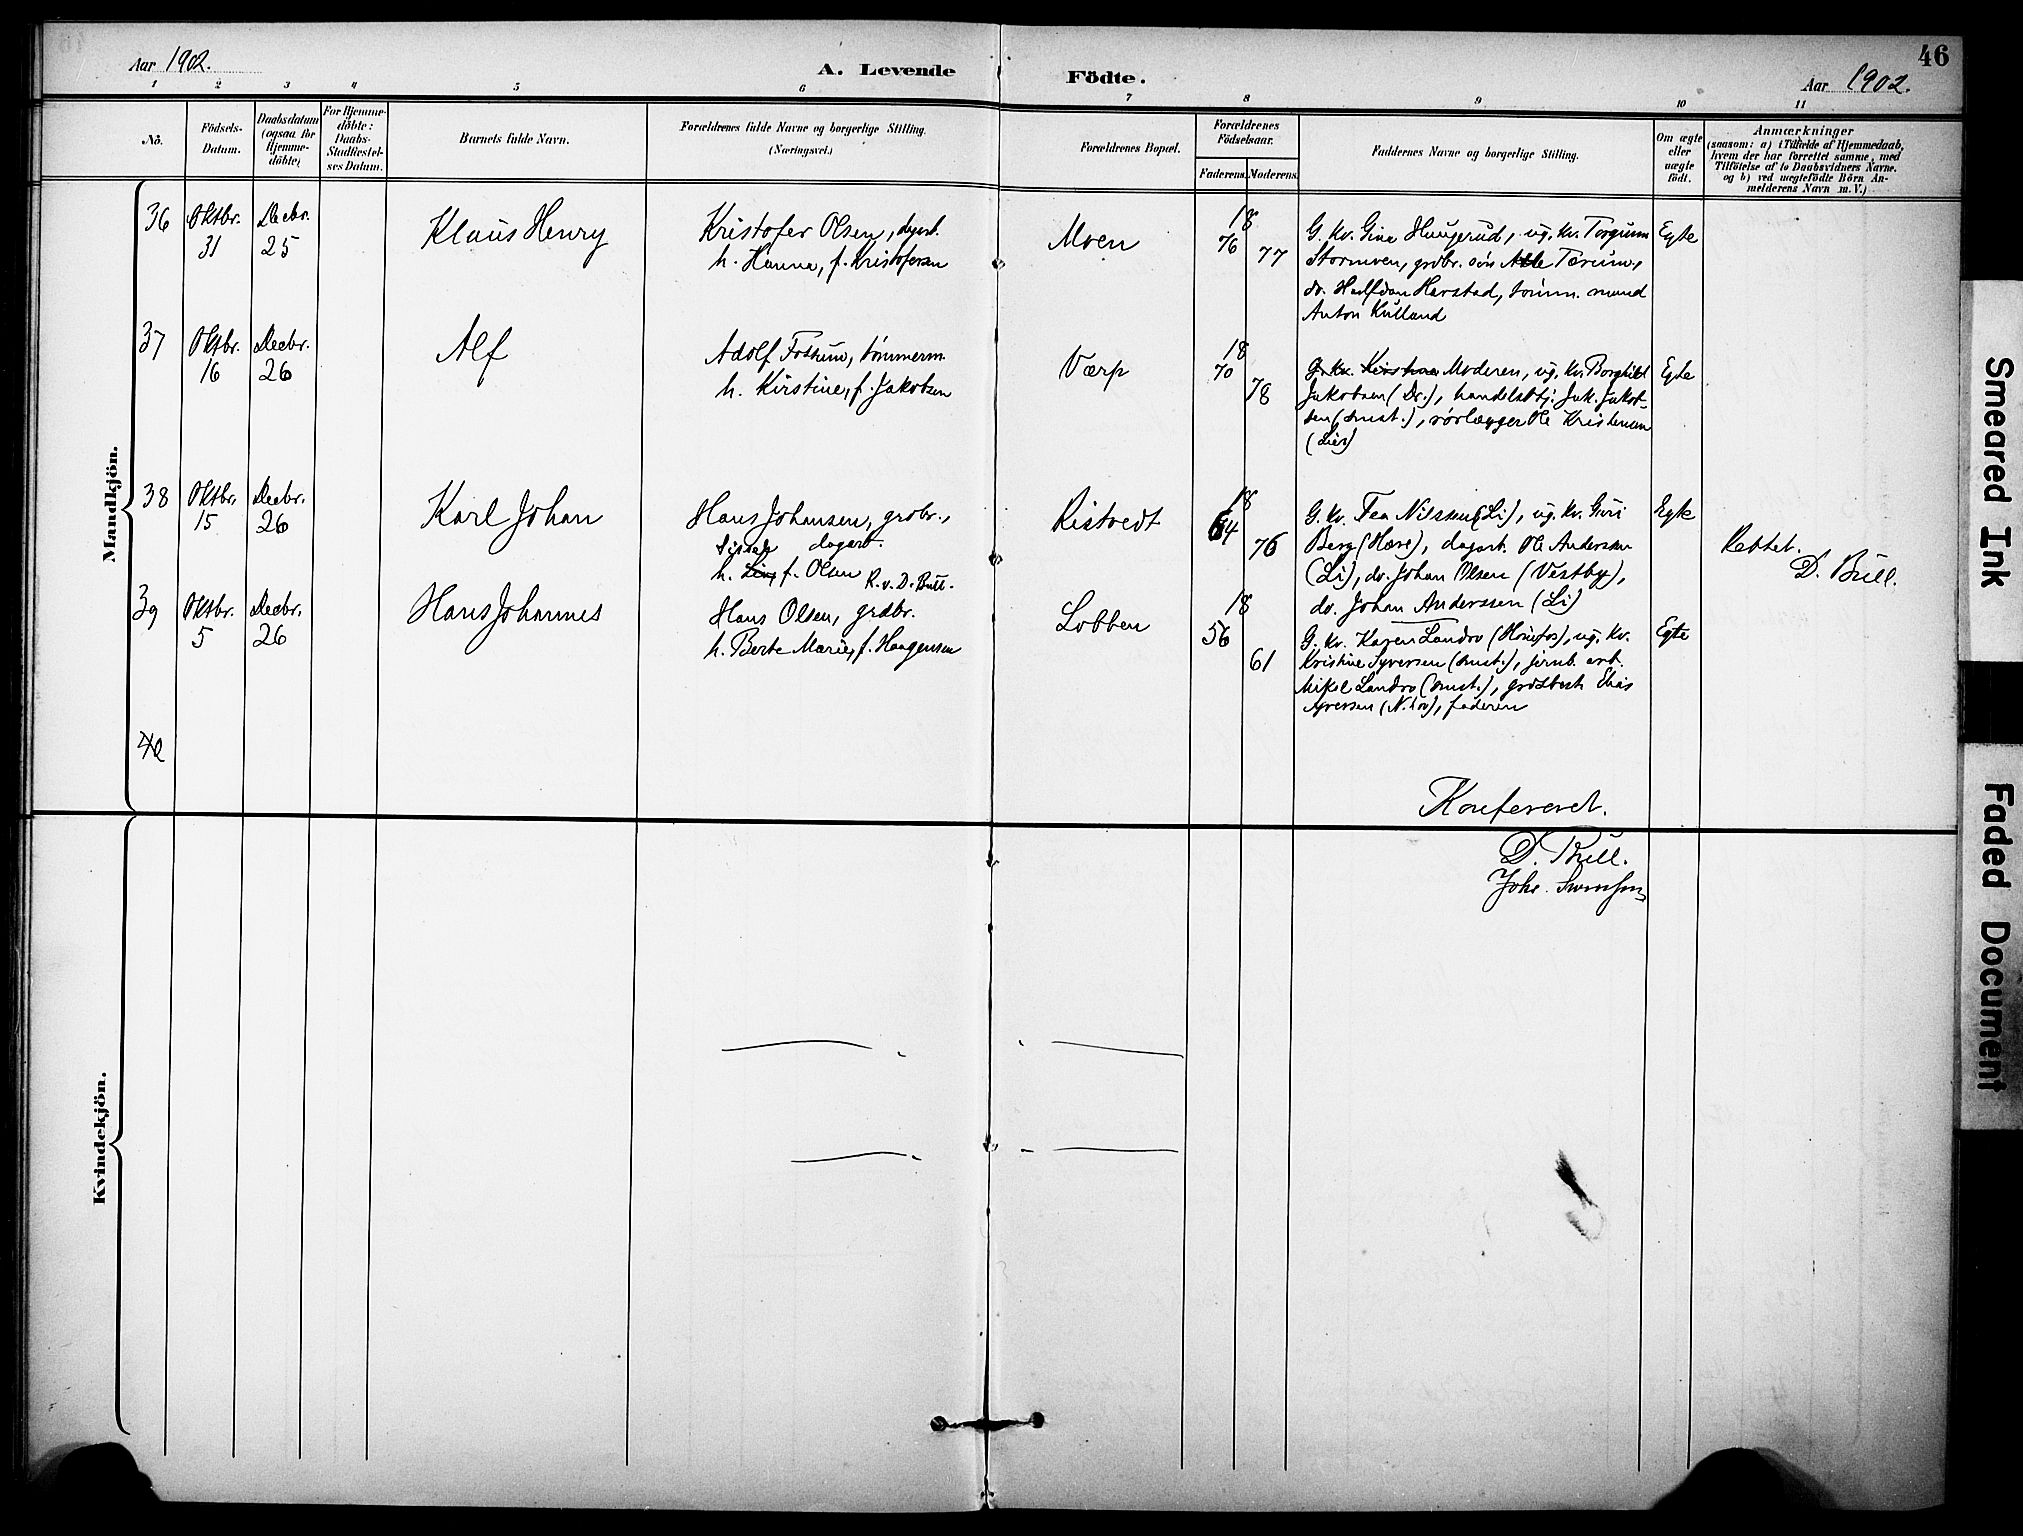 46
Aar 1902.
A. Levende Födte.
Aar 1902.
1 2 3 4 5 6 7 8 9 10 11
No.
Födsels-
Datum.
Daabsdatum
(ogsaa for
Hjemme-
döbte)
For Hjemme-
döbte:
Daabs-
Stadfæstel-
ses Datum.
Barnets fulde Navn.
Forældrenes fulde Navne og borgerlige Stilling.
(Næringsvei.)
Forældrenes Bopæl.
Forældrenes
Födselsaar.
Faderens. Moderens.
Faddernes Navne og borgerlige Stilling.
Om ægte
eller
uægte
födt.
Anmærkninger
(saasom: a) i Tilfælde af Hjemmedaab,
hvem der har forrettet samme, med
Tilföielse af to Daabsvidners Navne.
og b) ved uægtefödte Börn An-
melderens Navn m. V.)
Mandkjön.
36
Oktbr.
31
Decbr.
25
Klaus Henry
Kristofer Olsen, dagarb.
h. Hanna, f. Kristofersen
Moen
18
76
77
G. kv. Gina Haugerud, ug. kv. Torgunn
Stormoen, grdbr. sön Atle Tærum,
do. Halfdan Harstad, tömm. mand
Anton Kulland
Egte
37
Oktbr.
16
Decbr.
26
Alf
Adolf Fossum, tömmerm.
h. Kirstine, f. Jakobsen
Værp
18
70
78
G. kv. Kirstine Moderen, ug. kv. Borghild
Jakobsen (Dr.), handelsbtj. Jak. Jakob-
sen (smst.), rörlægger Ole Kristensen
(Lier)
Egte
38
Oktbr.
15
Decbr.
26
Karl Johan
Hans Johansen, grdbr.,
Sissel dagarb.
h. Lina, f. Olsen R. v. D. Bull.
Ristvedt
18
64
76
G. kv. Tea Nilssen (Li), ug. kv. Guri
Berg (Hære), dagarb. Ole Anderssen
(Li), do. Johan Olsen (Vestby),
do. Johan Anderssen (Li)
Egte
Rettet.
D. Bull.
39
Oktbr.
5
Decbr.
26
Hans Johannes
Hans Olsen, grdbr.
h. Berte Marie, f. Haagensen
Lobben
18
56
61
G. kv. Karen Landro (Hönefos), ug. kv.
Kristine Syversen (smst.), jernb. arb.
Mikel Landro (smst.), grdsbest. Elias
Syversen (N. Lo), faderen
Egte
40
Konfereret.
D. Bull.
Johs. Svendsen
Kvindekjön.
Smeared Ink
Faded Document